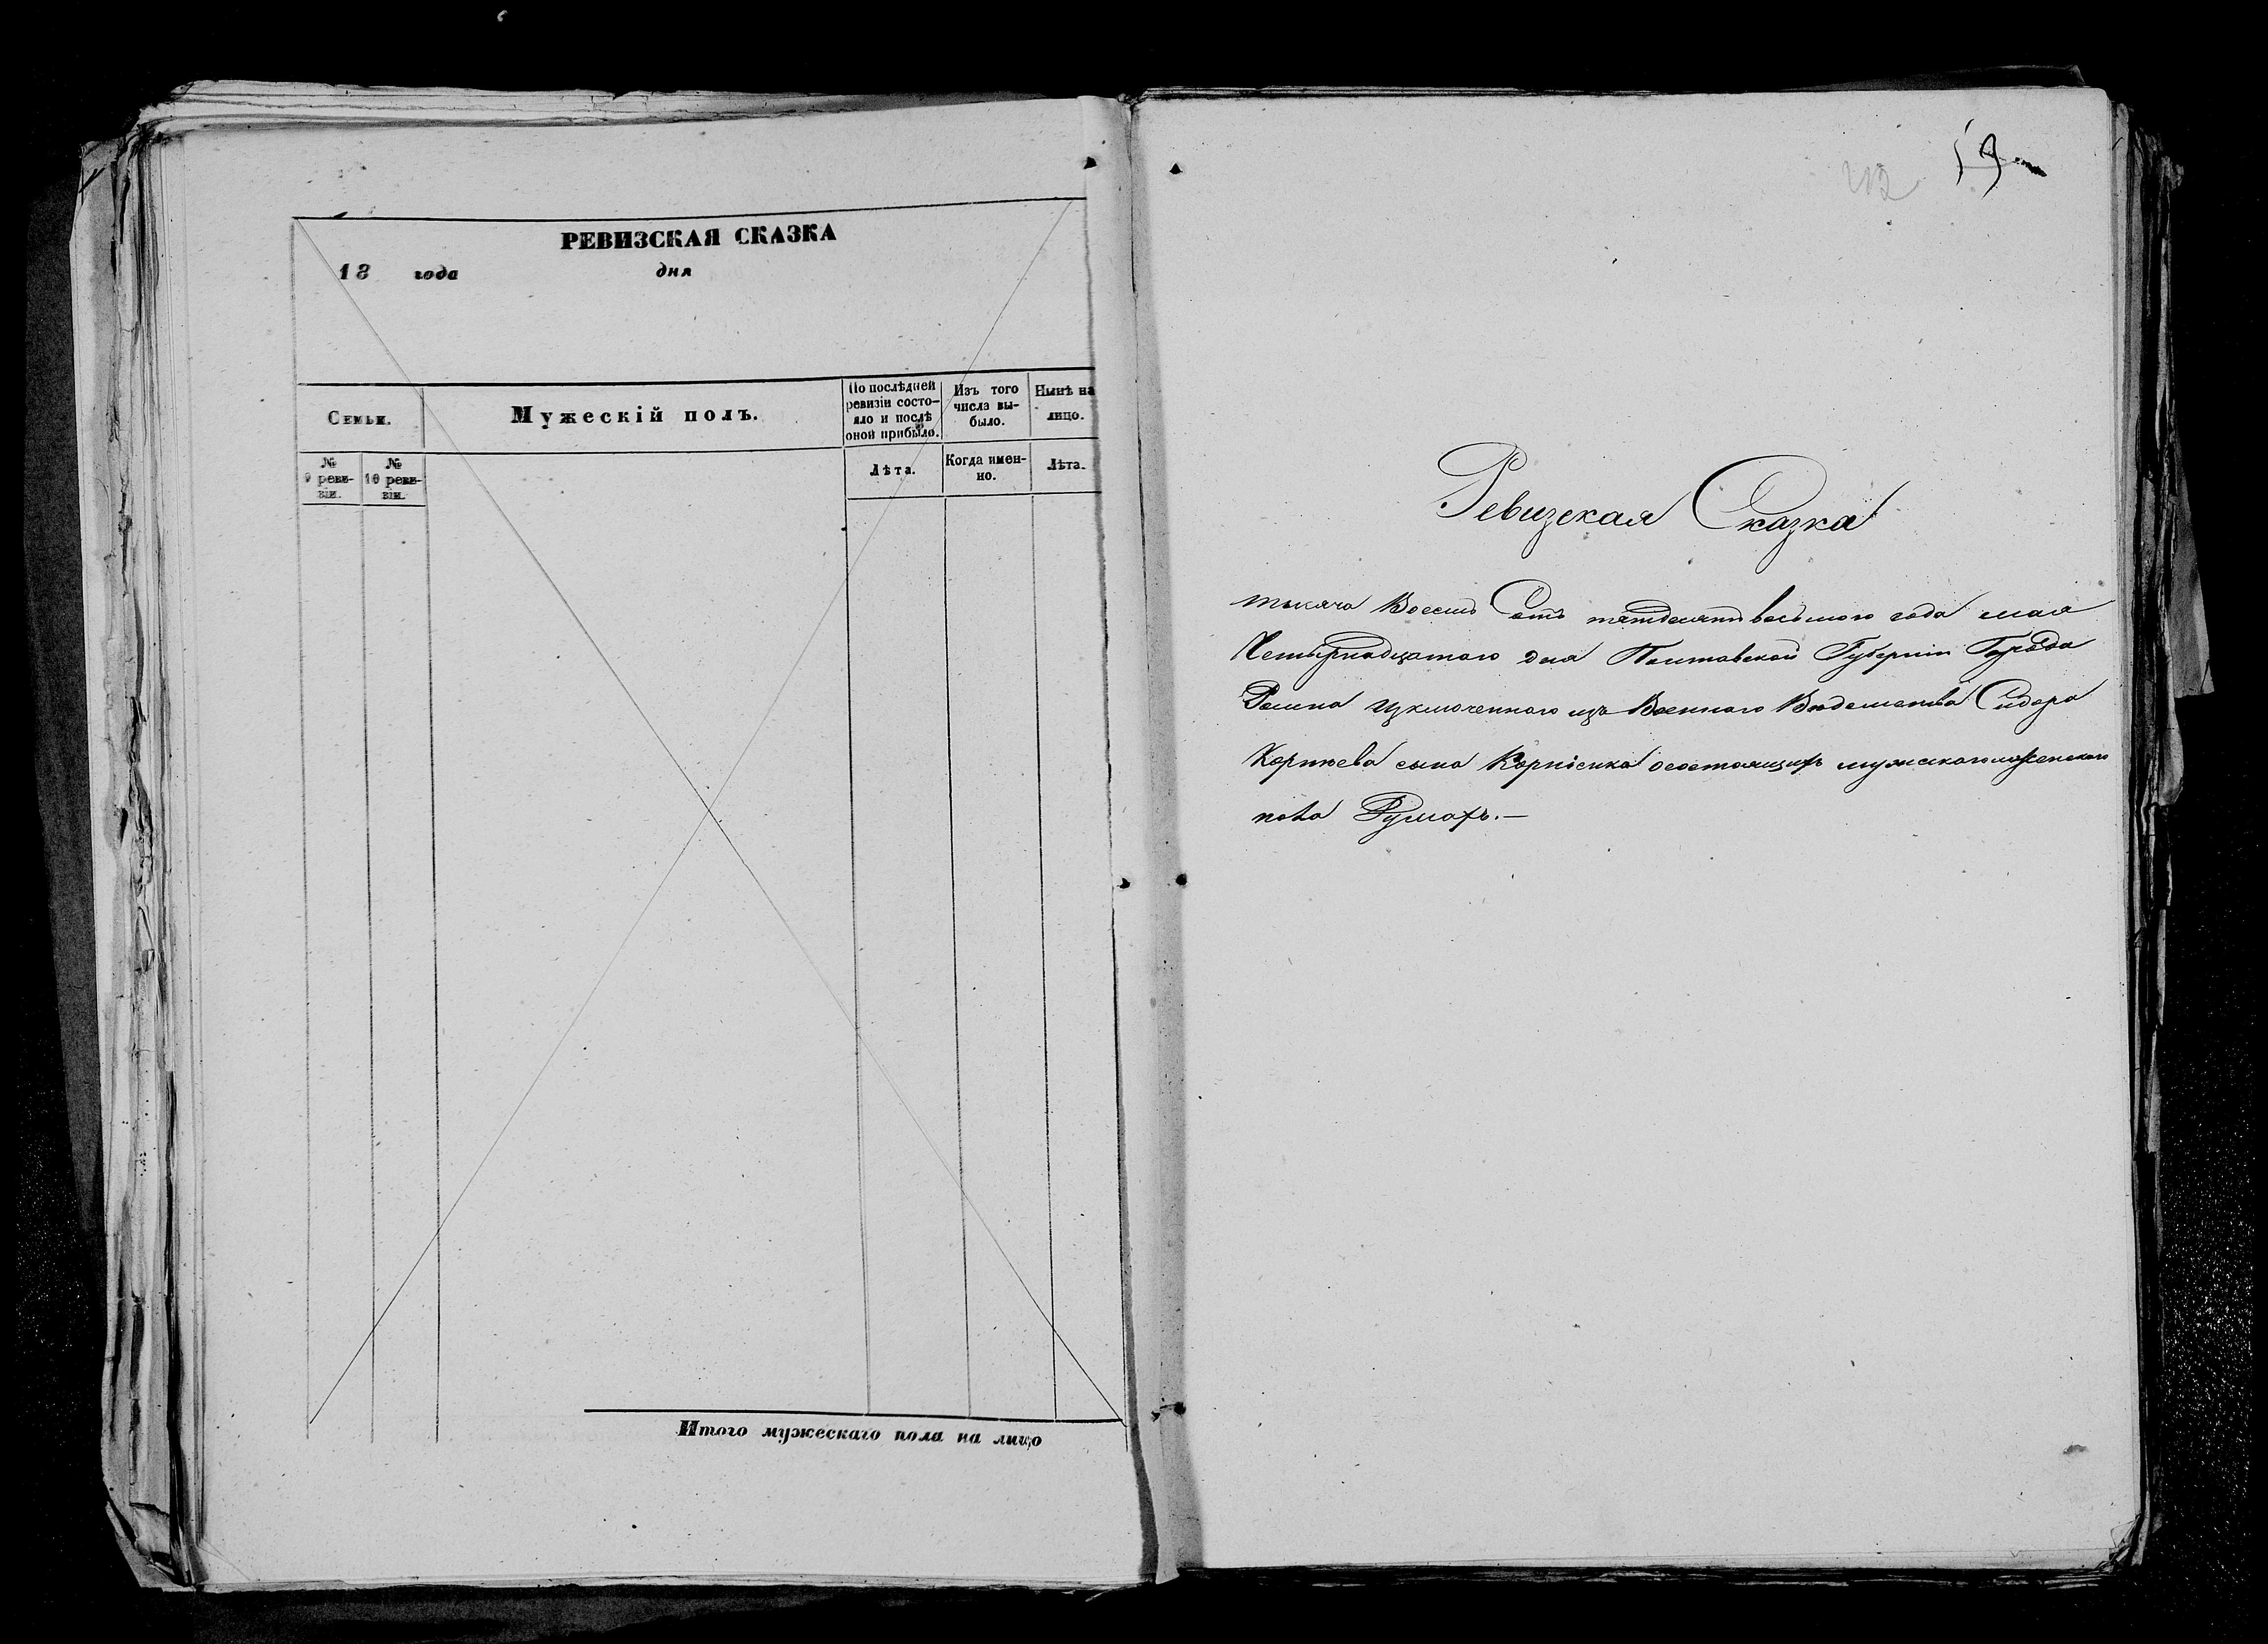 РЕВИЗСКАЯ СКАЗКА
18 года дня
Семьи.
Мужескій полъ.
По послѣдней ревизіи состо-
яло и послѣ
оной прибыло.
Изъ того
числа вы-
было.
Нынѣ на
лицо.
№
9 реви-
зіи.
№
10 реви-
зіи.
Лѣта.
Когда имен-
но.
Лѣта.
Итого мужескаго пола на лицо
19
Ревизская Сказка
тысяча Восемь Сотъ пятдесятъ восьмого года мая
Четырнадцатого дня Полтавской Губерніи Города
Ромна изключенного изъ Военного Вѣдомства Сидора
Корнѣева сына Корніенка о состоящихъ мужского и женского
пола Душахъ.—